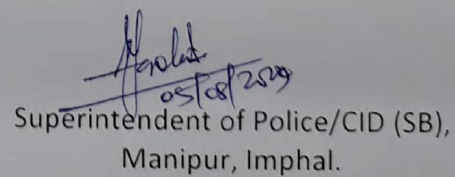 Superintendent of Police/CID (SB),
Manipur, Imphal.